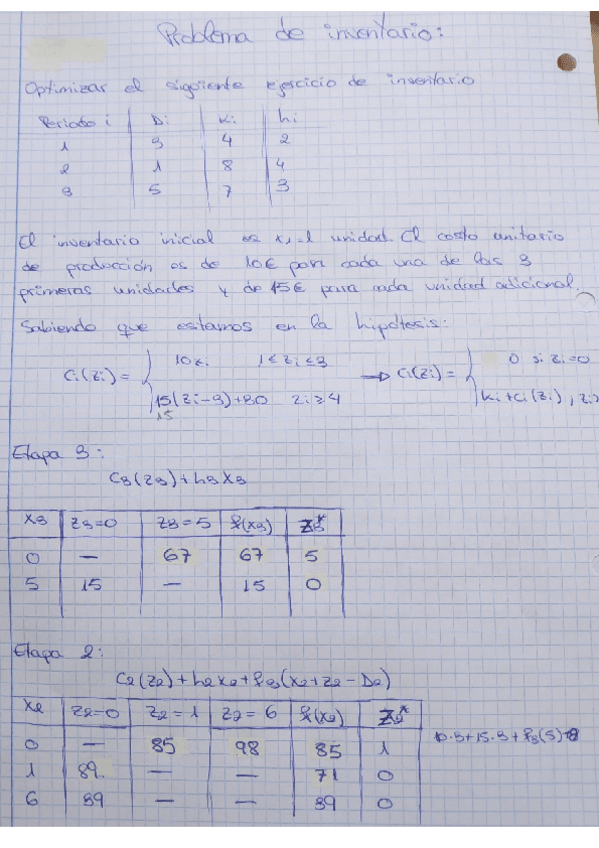 Problema de inventario:
Optimizar el siguiente ejercicio de inventario
Periodo i Di Ki hi
1 3 4 2
2 1 8 4
3 5 7 3
El inventario inicial es x1=1 unidad. El costo unitario
de producción es de 10€ para cada una de las 3
primeras unidades y de 15€ para cada unidad adicional.
Sabiendo que estamos en la hipótesis:
Ci(zi) = { 10zi 1≤zi≤3 → Ci(zi) = { 0 si zi=0
15(zi-3)+30 zi≥4 Ki+Ci(zi), zi>
15
Etapa 3:
C3(z3)+h3x3
x3 z3=0 z3=5 f(x3) z3*
0 — 67 67 5
5 15 — 15 0
Etapa 2:
C2(z2)+h2x2+f3(x2+z2-D2)
x2 z2=0 z2=1 z2=6 f(x2) z2*
0 — 85 98 85 1
1 — — 71 0
6 39 — — 39 0